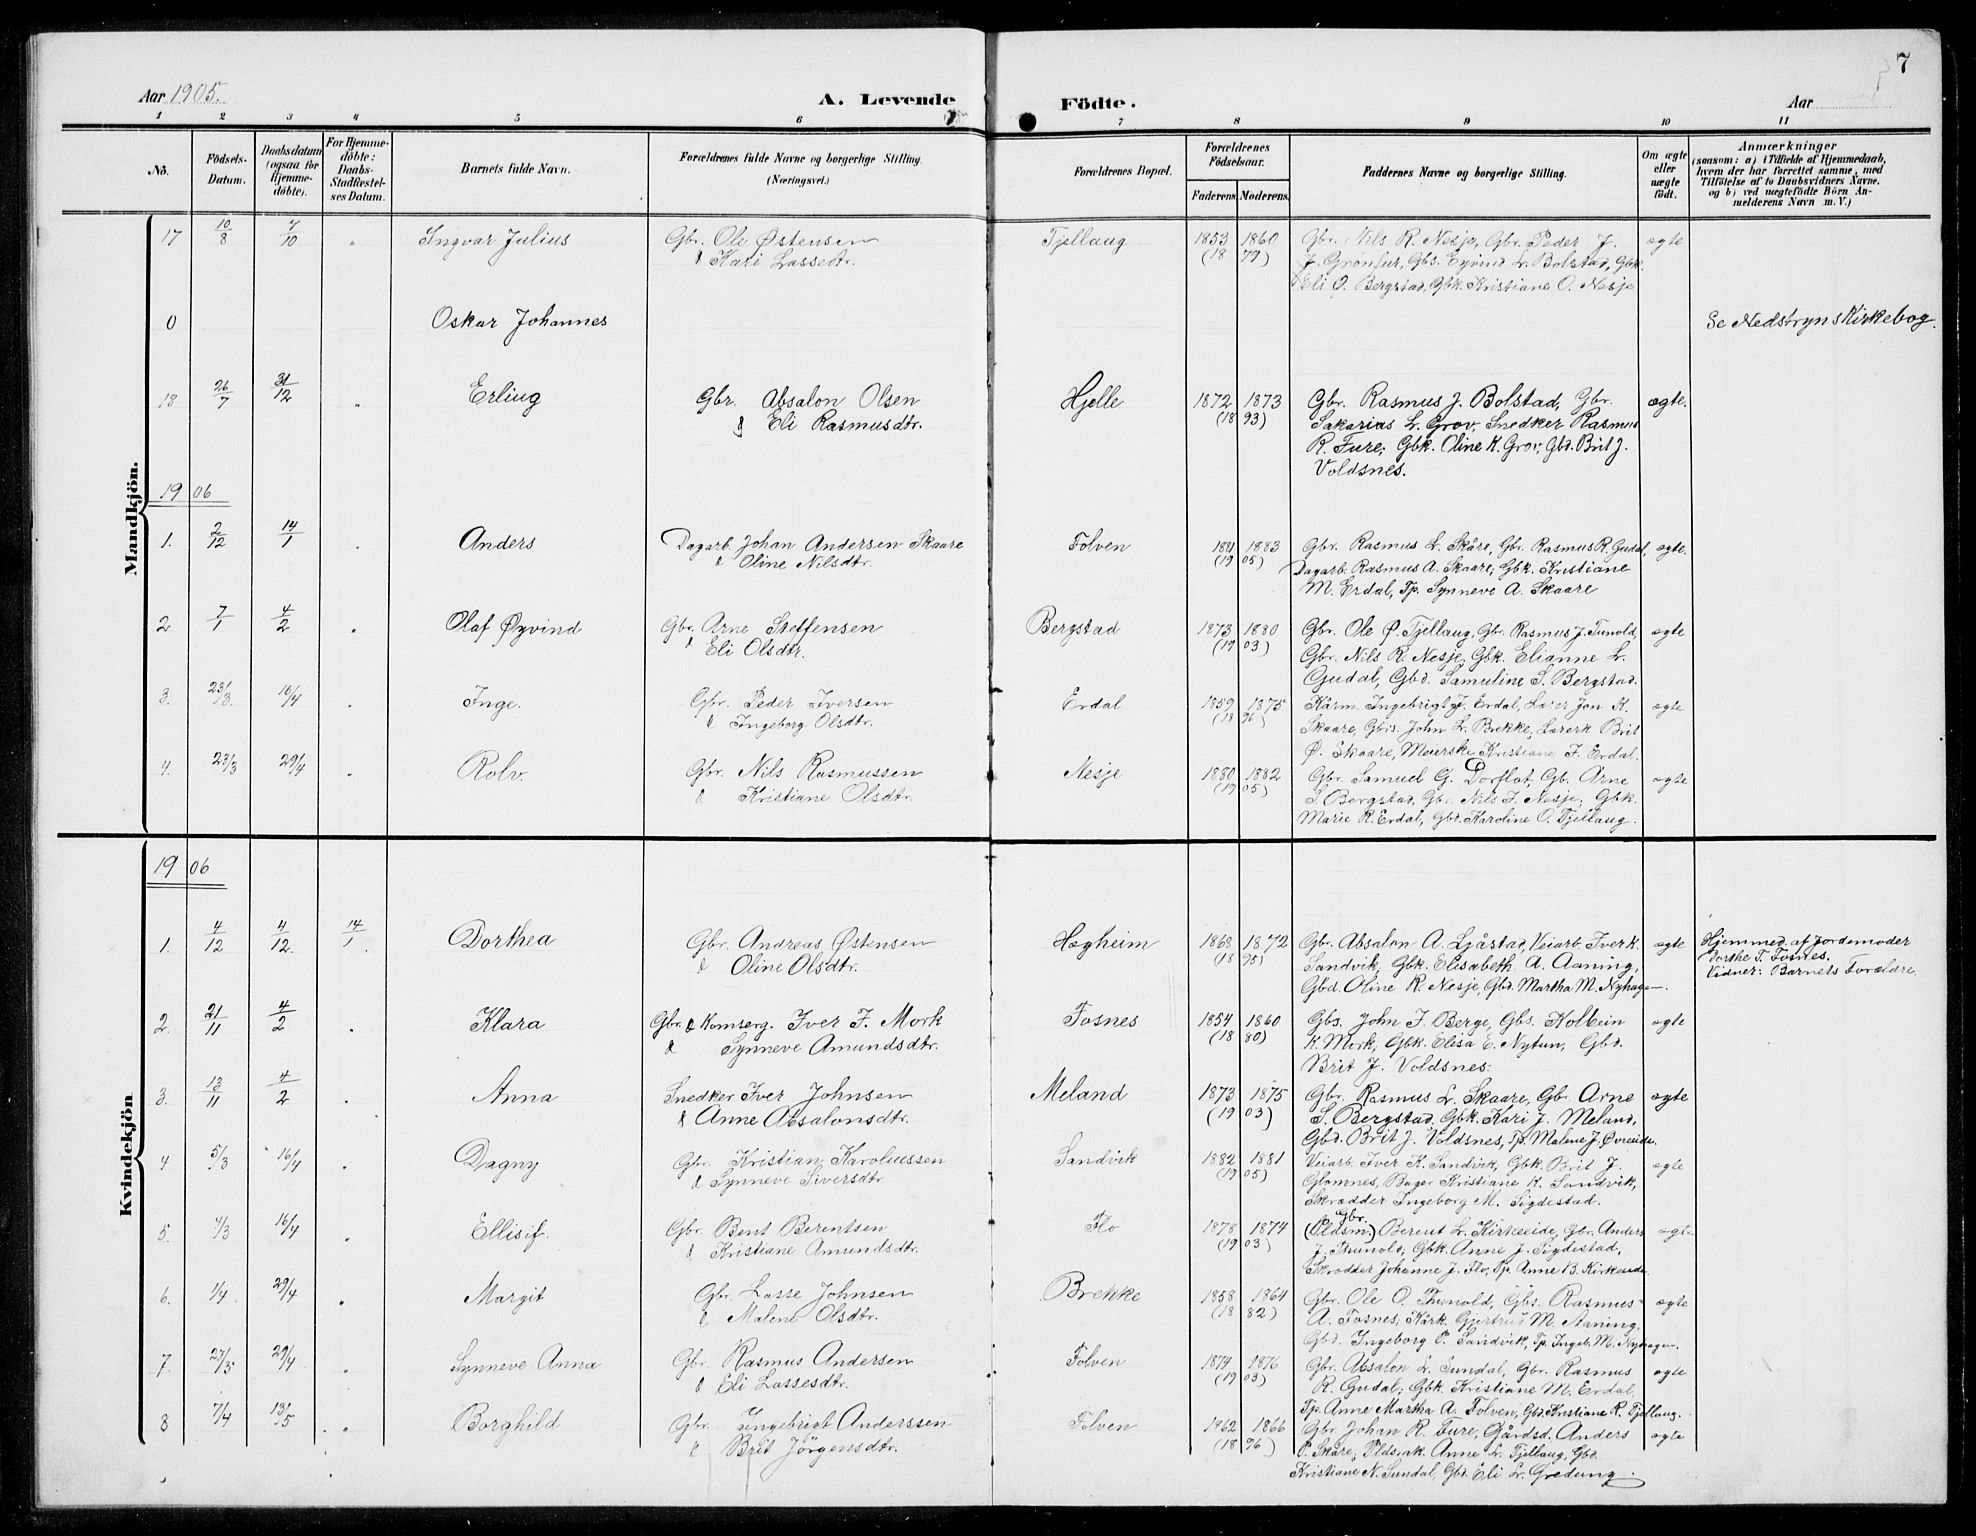 Aar 1905.
A. Levende Födte.
Aar
7
1 2 3 4 5 6 7 8 9 10 11
No.
Födsels-
Datum.
Daabsdatum
(ogsaa for
Hjemme-
döbte).
For Hjemme-
döbte:
Daabs-
StadRestel-
ses Datum.
Barnets fulde Navn.
Forældrenes fulde Navne og borgerlige Stilling.
(Næringsvei.)
Forældrenes Bopæl.
Forældrenes
Födselsaar.
Faderens Moderens.
Faddernes Navne og borgerlige Stilling.
Om ægte
eller
uægte
födt.
Anmærkninger
(saasom: a) i Tilfælde af Hjemmedaab,
hvem der har forrettet samme, med
Tilföielse af to Daabsvidners Navne.
og b) ved uægtefödte Börn An-
melderens Navn m. V.)
Mandkjön.
17 10/8 7/10 " Ingvar Julius Gbr. Ole Østensen Tjellaug 1853 1860 Gbr. Nils R. Nesje, Gbr. Peder J. ægte
& Kari Lassedtr. (18 79) Grönfur, Gbs. Eyvind L. Bolstad, Gbk.
Eli O. Bergstad, Gbk. Kristiane O. Nesje
0 Oskar Johannes Se Nedstryns Kirkebog.
18 26/7 31/12 " Erling Gbr. Absalon Olsen Hjelle 1872 1873 Gbr. Rasmus J. Bolstad, Gbr. ægte.
& Eli Rasmusdtr. (18 93) Sakarias L. Grov, Snedker Rasmus
R. Fure; Gbk. Oline K. Grov, Gbd. Brit J.
Voldsnes.
19 06
1. 2/12 14/1 " Anders Dagarb. Johan Andersen Skaare Folven 1881 1883 Gbr. Rasmus L. Skåre, Gbr. Rasmus R. Gudal, ægte.
& Oline Nilsdtr. (19 05) Dagarb. Rasmus A. Skaare; Gbk. Kristiane
M. Erdal, Tp. Synneve A. Skaare
2 7/1 4/2 " Olaf Øyvind Gbr. Arne Steffensen Bergstad 1873 1880 Gbr. Ole Ø. Tjellaug, Gbr. Rasmus J. Tunold, ægte
& Eli Olsdtr. (19 03) Gbr. Nils R. Nesje, Gbk. Elianne L.
Gudal, Gbd. Samuline S. Bergstad.
3. 23/3 16/4 " Inge. Gbr. Peder Iversen Erdal 1859 1875 Kårm. Ingebrigt J. Erdal, Lærer Jon K. ægte
& Ingeborg Olsdtr. (18 96) Skaare, Gbrs. John L. Brekke, Lærerk Brit
Ø. Skaare, Meierske Kristiane J. Erdal.
4. 23/3 29/4 " Rolv. Gbr. Nils Rasmussen Nesje 1880 1882 Gbr. Samuel G. Dorflot, Gb. Arne ægte
& Kristiane Olsdtr. (19 05) S. Bergstad, Gbr. Nils J. Nesje; Gbk.
Marie R. Erdal, Gbd. Karoline O. Tjellaug.
Kvindekjön
19 06
1. 4/12 4/12. 14/1. Dorthea Gbr. Andreas Østensen Hægheim 1868 1872 Gbr. Absalon A. Ljåstad, Veiarb. Iver K. ægte Hjemmed. af Jordemoder
& Oline Olsdtr. (18 95) Sandvik, Gbk. Elisabeth A. Aaning, Dorthe T. Fosnes.
Gbd. Oline R. Nesje, Gbd. Martha M. Nyhagen. Vidner: Barnets Forældre.
2. 21/11 4/2 " Klara Gbr. & Komserg. Iver J. Mork Fosnes 1854 1860 Gbs. John J. Berge, Gbs. Kolbein ægte
& Synneve Amundsdtr. (18 80) K. Mork, Gbk. Elisa E. Nytun, Gbd.
Brit J. Voldsnes.
3. 13/11 4/2 " Anna Snedker Iver Johnsen Meland 1873 1875 Gbr. Rasmus L. Skaare, Gbr. Arne ægte
& Anne Absalonsdtr. (19 03) S. Bergstad, Gbk. Kari J. Meland,
Gbd. Brit J. Voldsnes, Tp. Malene J. Øvreeide.
4 5/3 16/4 " Dagny Gbr. Kristian Karoliussen Sandvik 1882 1881 Veiarb. Iver K. Sandvik, Gbk. Brit J. ægte
& Synneve Siversdtr (19 05) Glomnes, Bager Kristiane K. Sandvik,
Skrædder Ingeborg M. Sigdestad.
5. 7/3 16/4 " Ellisif. Gbr. Bent Berentsen Flo 1878 1874 (Gbr. Pldsm.) Berent L. Kirkeeide, Gbr. Anders ægte
& Kristiane Amundsdtr. (19 03) J. Thunold, Gbk. Anne J. Sigdestad,
Skrædder Johanne J. Flo, Tp. Anne B. Kirkeeide.
6. 1/4. 29/4 " Margit Gbr. Lasse Johnsen Brekke 1858 1864 Gbr. Ole O. Thunold, Gbs. Rasmus ægte
& Malene Olsdtr. (18 82) A. Fosnes; Kårk. Gjertrud M. Aaning,
Gbd. Ingeborg P. Sandvik, Tp. Ingeb. M. Nyhagen.
7. 27/3 29/4 " Synneve Anna Gbr. Rasmus Andersen Folven 1874 1876 Gbr. Absalon L. Sundal, Gbr. Rasmus ægte
& Eli Lassesdtr. (19 03) R. Gudal; Gbk. Kristiane M. Erdal,
Tp. Anne Martha A. Folven, Gbd. Kristiane R. Tjellaug.
8 7/4 13/5 " Borghild Gbr. Ingebrigt Anderssen Folven 1862 1866 Gbr. Johan R. Fure, Gårdsd. Anders ægte
& Brit Jörgensdtr. (18 96) P. Skåre; Pldsmk. Anne L. Tjellaug, Gbd.
Kristiane N. Sundal, Gbd. Eli L. Gredung.